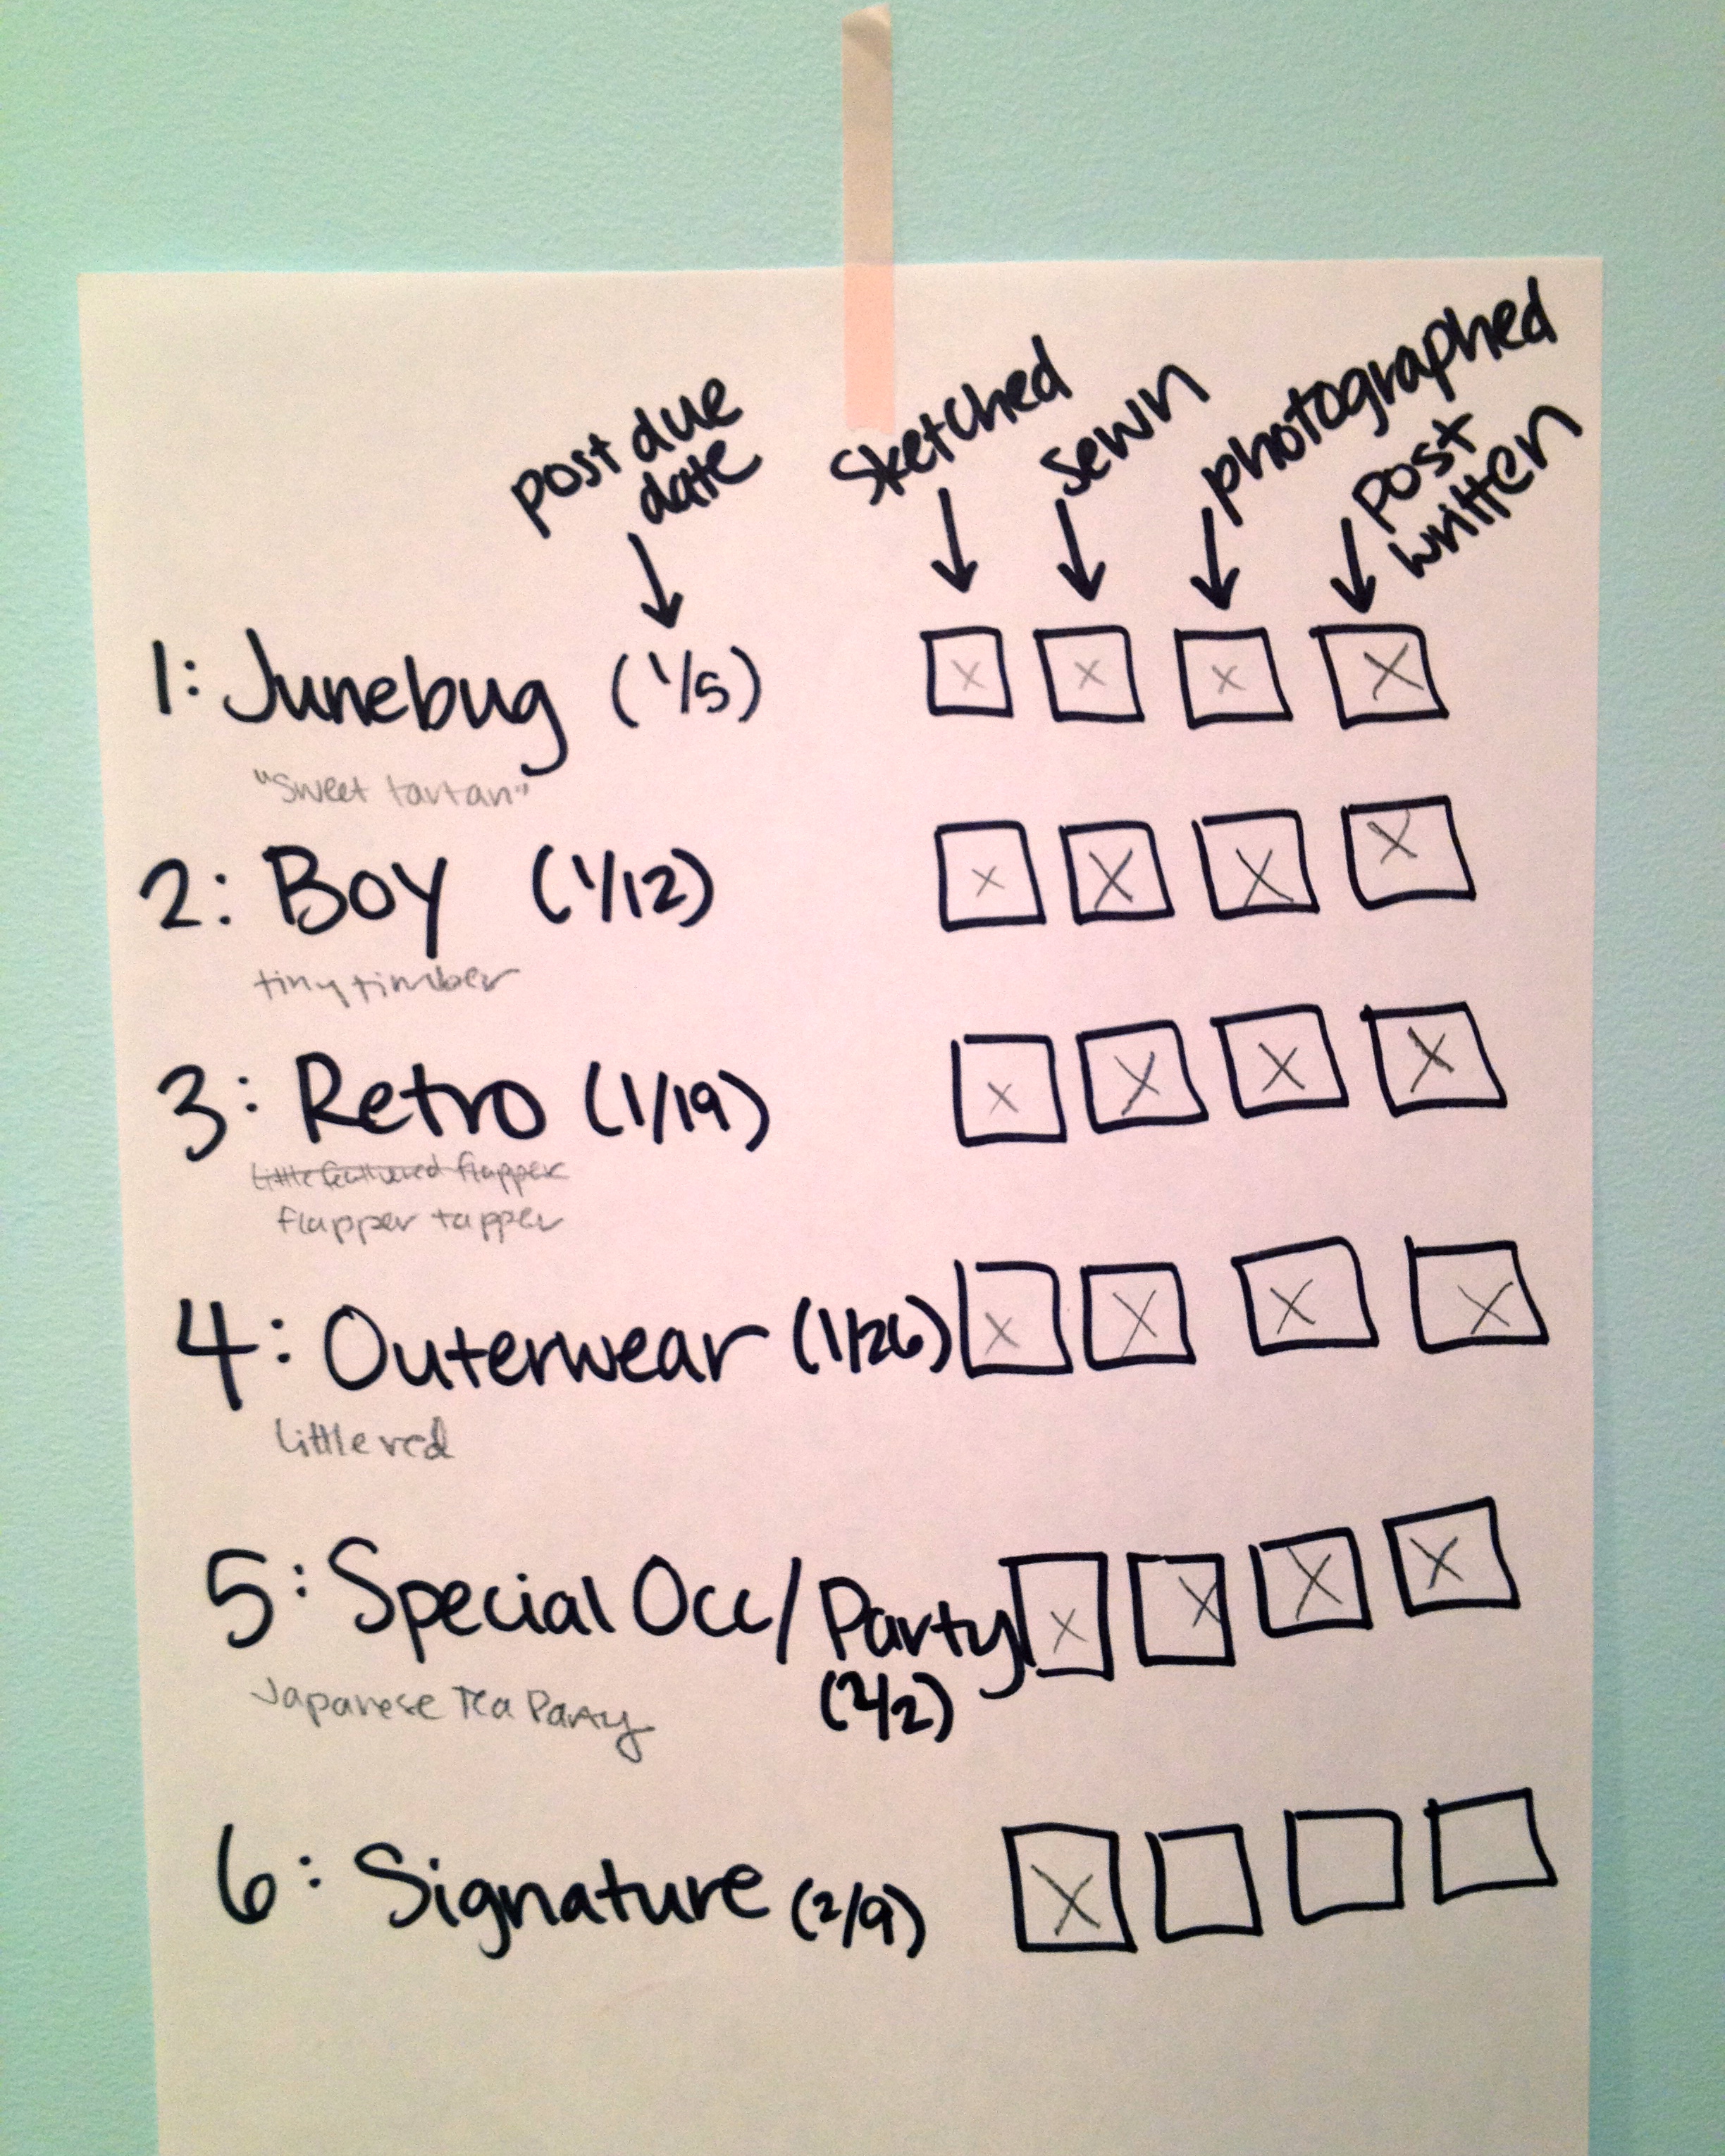 post due
date
Sketched
Sewn
photographed
Post
written
1: Junebug (1/5)
"Sweet tartan"
2: Boy (1/12)
tiny timber
3: Retro (1/19)
Little feathered flapper
flapper tapper
4: Outerwear (1/26)
Little red
5: Special Occ/Party
(2/2)
Japanese Tea Party
6: Signature (2/9)